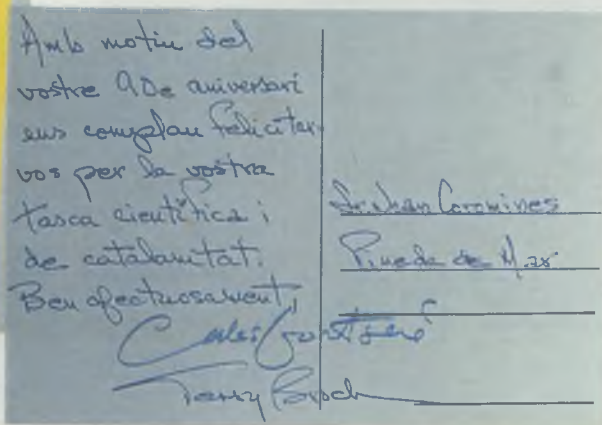 Amb motiu del
vostre 90e aniversari
ens complau felicitar-
vos per la vostra
tasca científica i
de catalanitat.
Ben afectuosament,
Carles
Bosch
Sr. Joan Coromines
Pineda de Mar